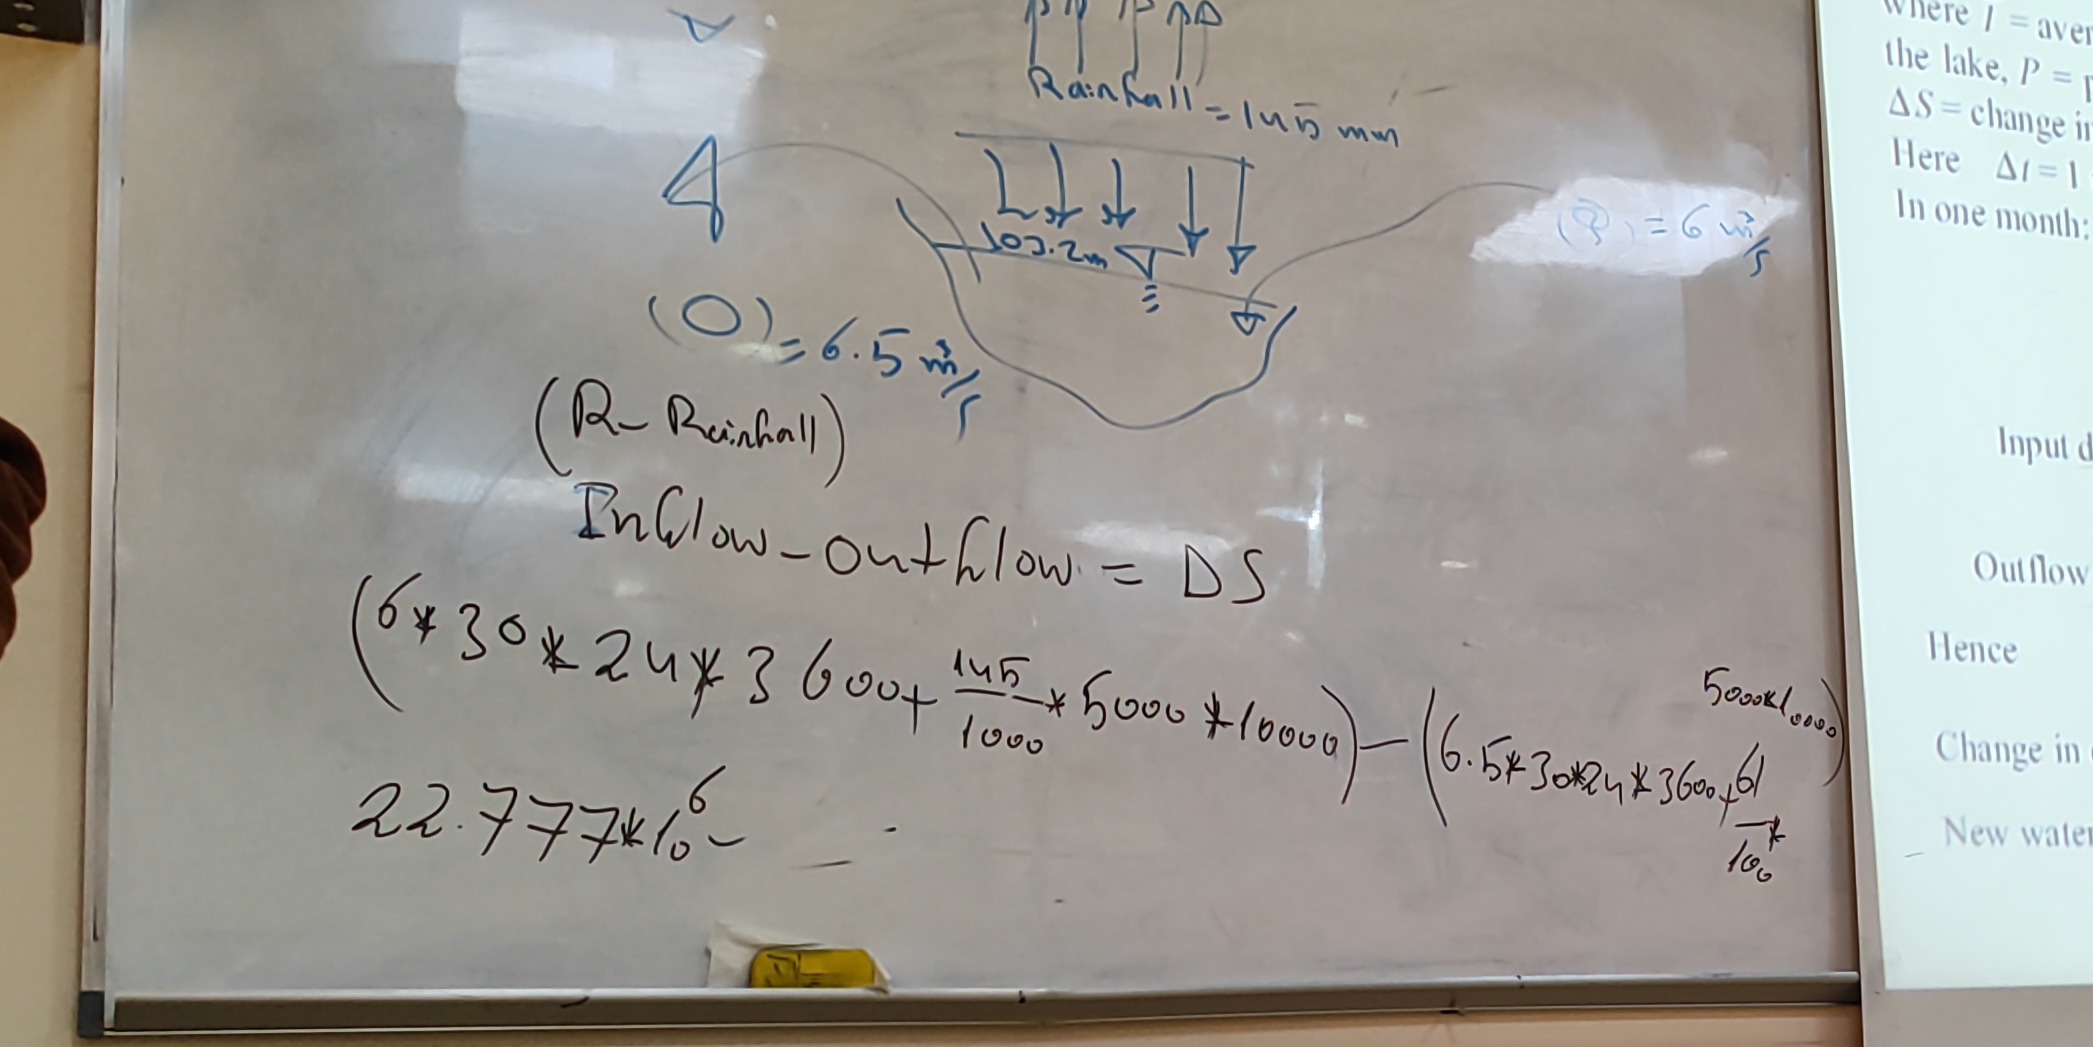 Rainfall = 145 mm
103.2m
(Q) = 6 m³/s
(O) = 6.5 m³/s
(R- Rainfall)
Inflow - outflow = DS
(6*30*24*3600+ 145/1000 *5000*10000) - (6.5*30*24*3600+ 61/1000 * 5000*10000)
22.777*10⁶ -
where I = aver
the lake, P = p
ΔS = change in
Here Δt = 1
In one month:
Input d
Outflow
Hence
Change in
New water